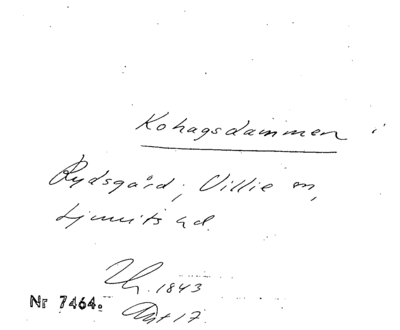 Kohagsdammen i
Rydsgård, Villie sn,
Ljunits hd.
1843
Nr 7464.
17.